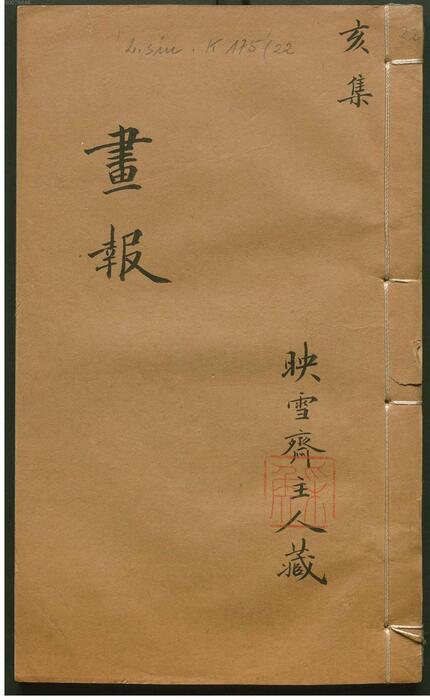 L.sin. K 175/22
22
亥集
畫報
映雪齋主人藏